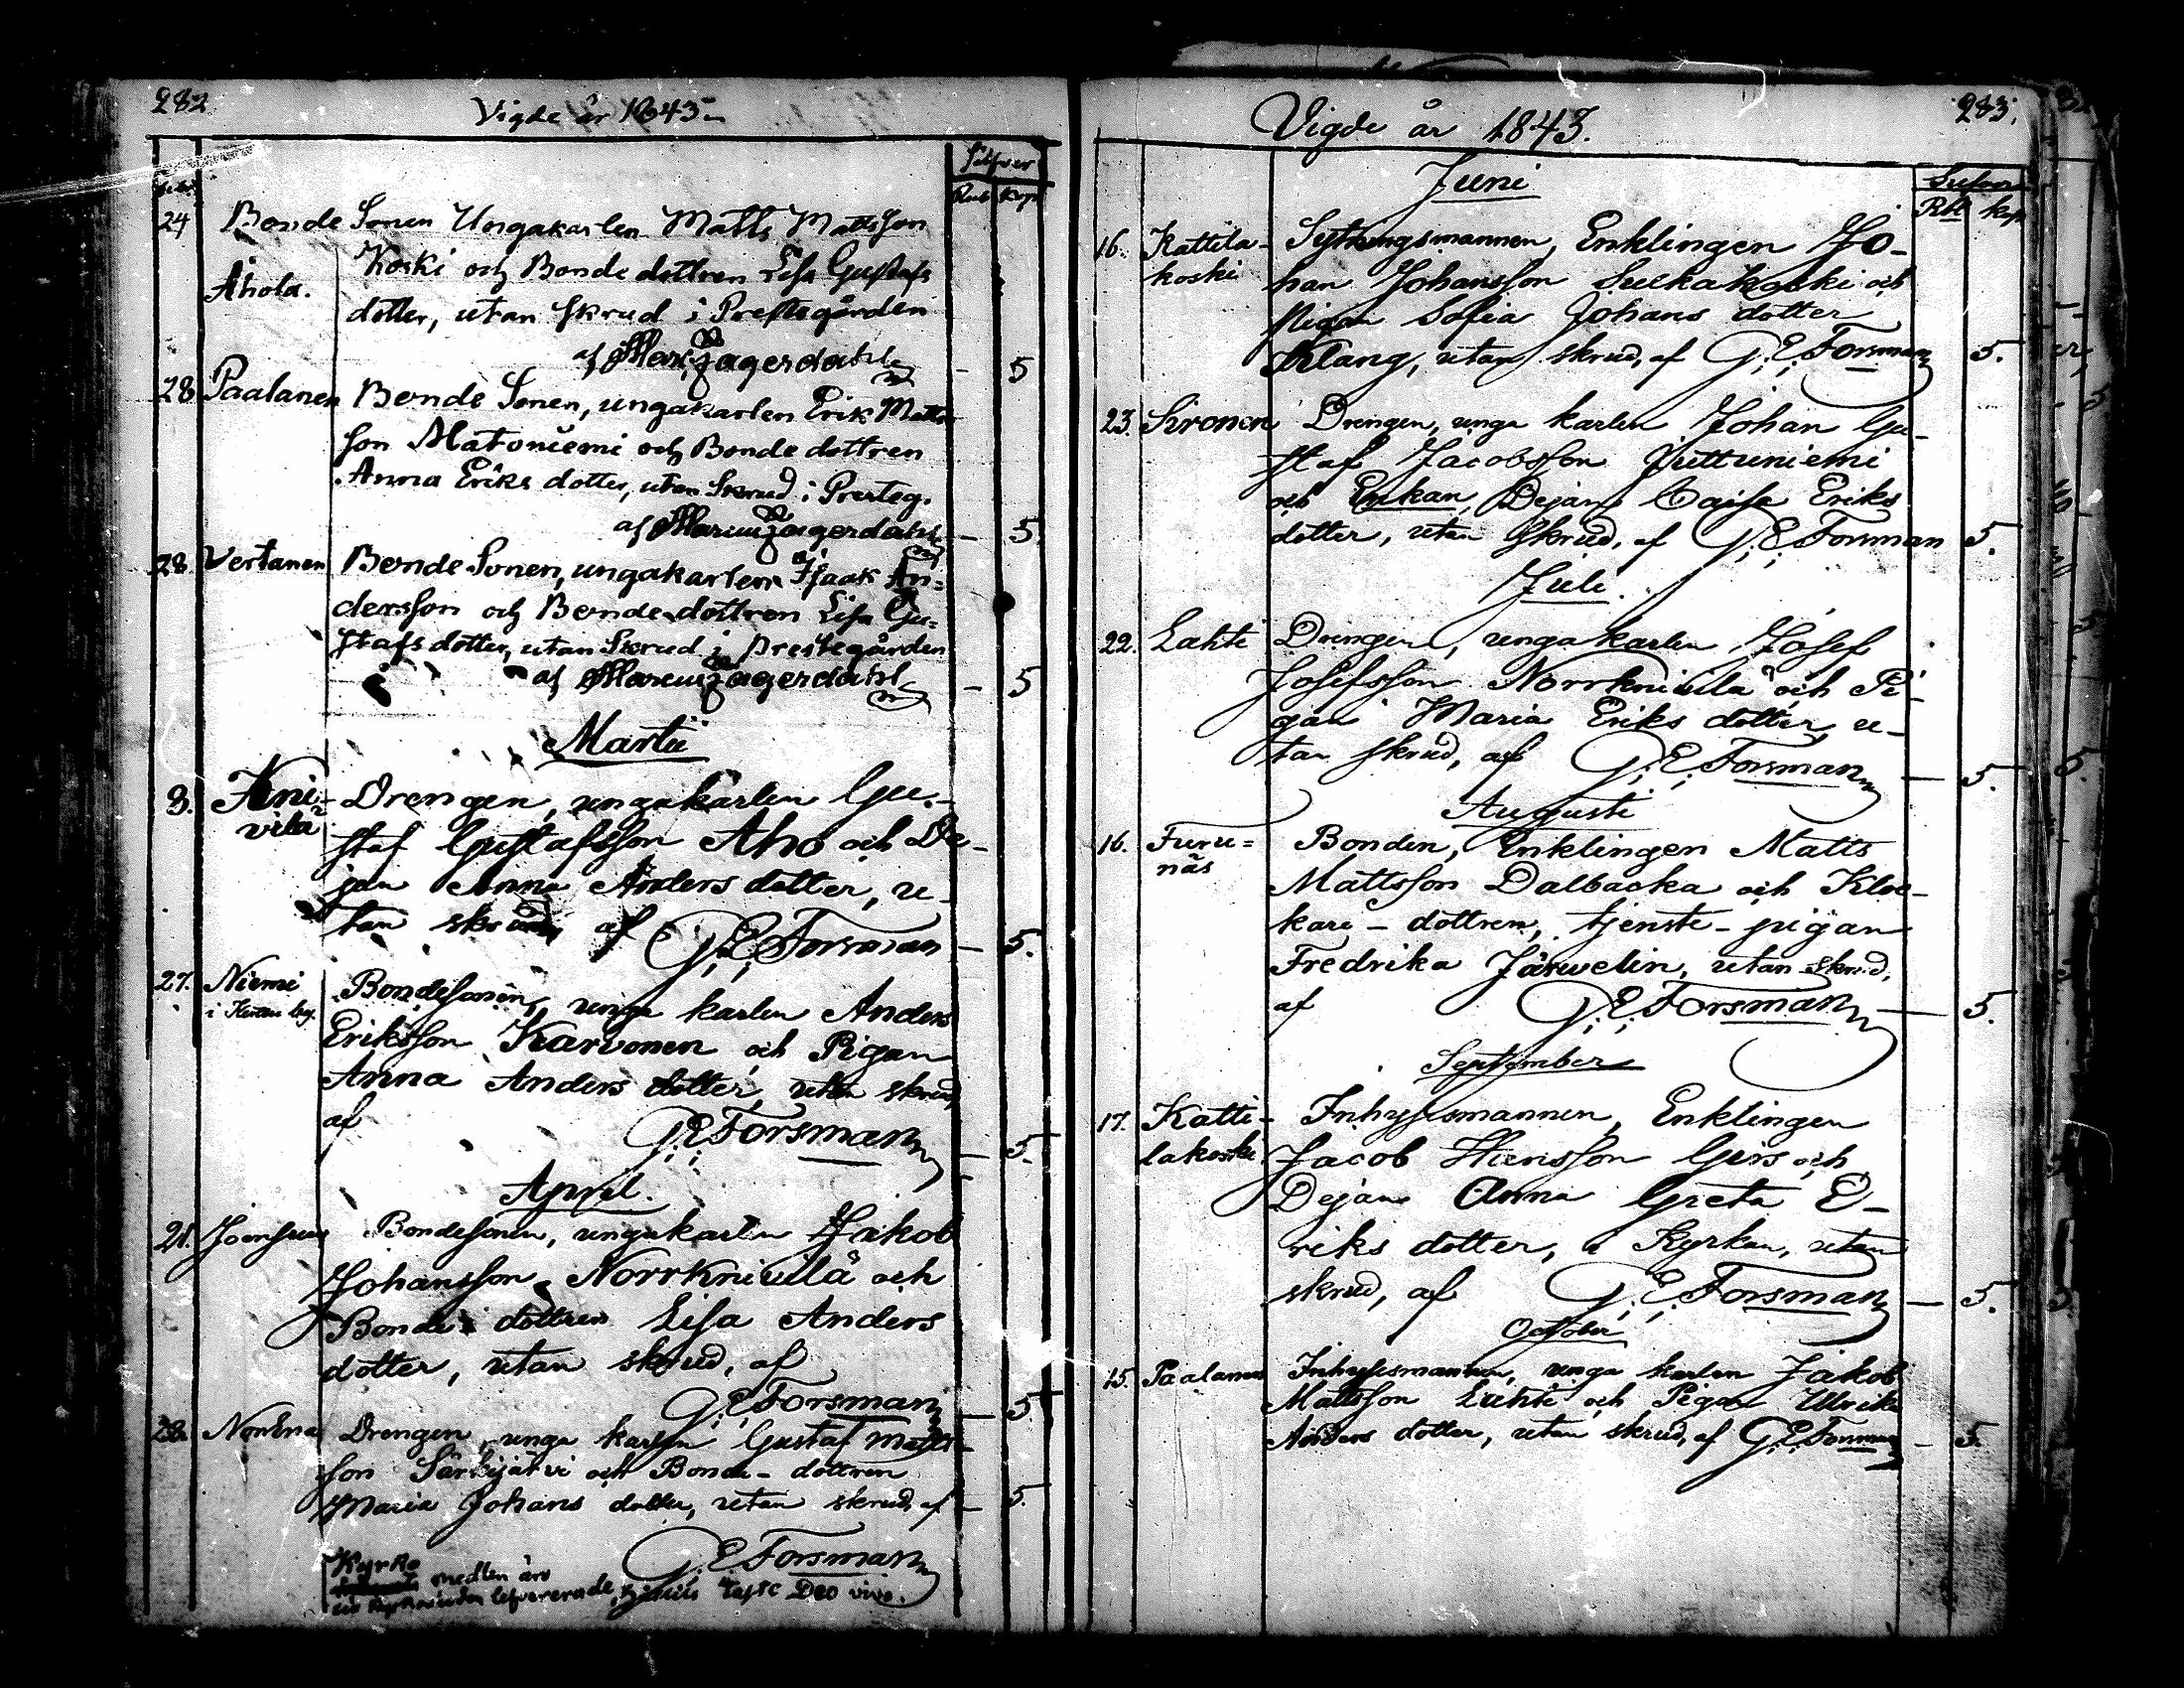 282
Vigde år 1843
Silfver
Rub Kop
24 Bonde Sonen Ungakarlen Matts Mattsson
Koski och Bonde dottren Lisa Gustafs
Ahola. dotter, utan skrud i Prestegården
af Zagerdahl - 5
28 Paalanen Bonde Sonen, ungakarlen Erik Matts
son Matoniemi och Bonde dottren
Anna Eriks dotter, utan Skrud i Presteg.
af Zagerdahl - 5.
28 Vertanen Bonde Sonen, ungakarlen Isaak An-
dersson och Bonde dottren Lisa Gu-
stafs dotter, utan Skrud i Prestegården
af Zagerdahl - 5
Martii
3. Kni- Drengen, ungakarlen Gu-
vilä staf Gustafsson Aho och De-
jan Anna Anders dotter, u-
tan skrud af G. E. Forsman - 5.
27. Niemi Bondesonen, unga karlen Anders
i by. Eriksson Karvonen och Pigan
Anna Anders dotter, utan skrud,
af G. E. Forsman - 5.
April.
21. Joensuu Bondesonen, ungakarlen Jakob
Johansson Norrknivilä och
Bonde dottren Lisa Anders
dotter, utan skrud, af
G. E. Forsman - 5
28. Drengen, unga karlen Gustaf Matts-
son Särkijärvi och Bonde-dottren
Maria Johans dotter, utan skrud, af - 5.
G. E. Forsman
Kyrko
medlen äro
lefvererade, Deo vivo.
283.
Vigde år 1843.
Juni
Silfver
Rbl kop
16. Kattila- Sytningsmannen, Enklingen Jo-
koski han Johansson Sulkakoski och
Pigan Sofia Johans dotter
Klang, utan skrud, af G. E. Forsman 5.
23. Sironen Drengen, unga karlen Johan Gu-
staf Jacobsson Juttuniemi
och Enkan, Dejan Caisa Eriks
dotter, utan skrud, af G. E. Forsman 5.
Juli.
22. Lahti Drengen, ungakarlen Josef
Josefsson Norrknivilä och Pi-
gan Maria Eriks dotter, u-
tan skrud, af G. E. Forsman - 5.
Augusti
16. Furu= Bonden, Enklingen Matts
näs Mattsson Dalbacka och Kloc-
kare-dottren, tjenste-pigan
Fredrika Järwelin, utan skrud,
af G. E. Forsman - 5.
September
17. Katti- Inhysismannen, Enklingen
lakoski Jacob Girs och
Dejan Anna Greta E-
riks dotter, i Kyrkan, utan
skrud, af G. E. Forsman - 5.
October
15. Paalanen Inhysismannen, unga karlen Jakob
Mattsson Lahti och Pigan Ulrika
Anders dotter, utan skrud, af G. E. Forsman - 5.